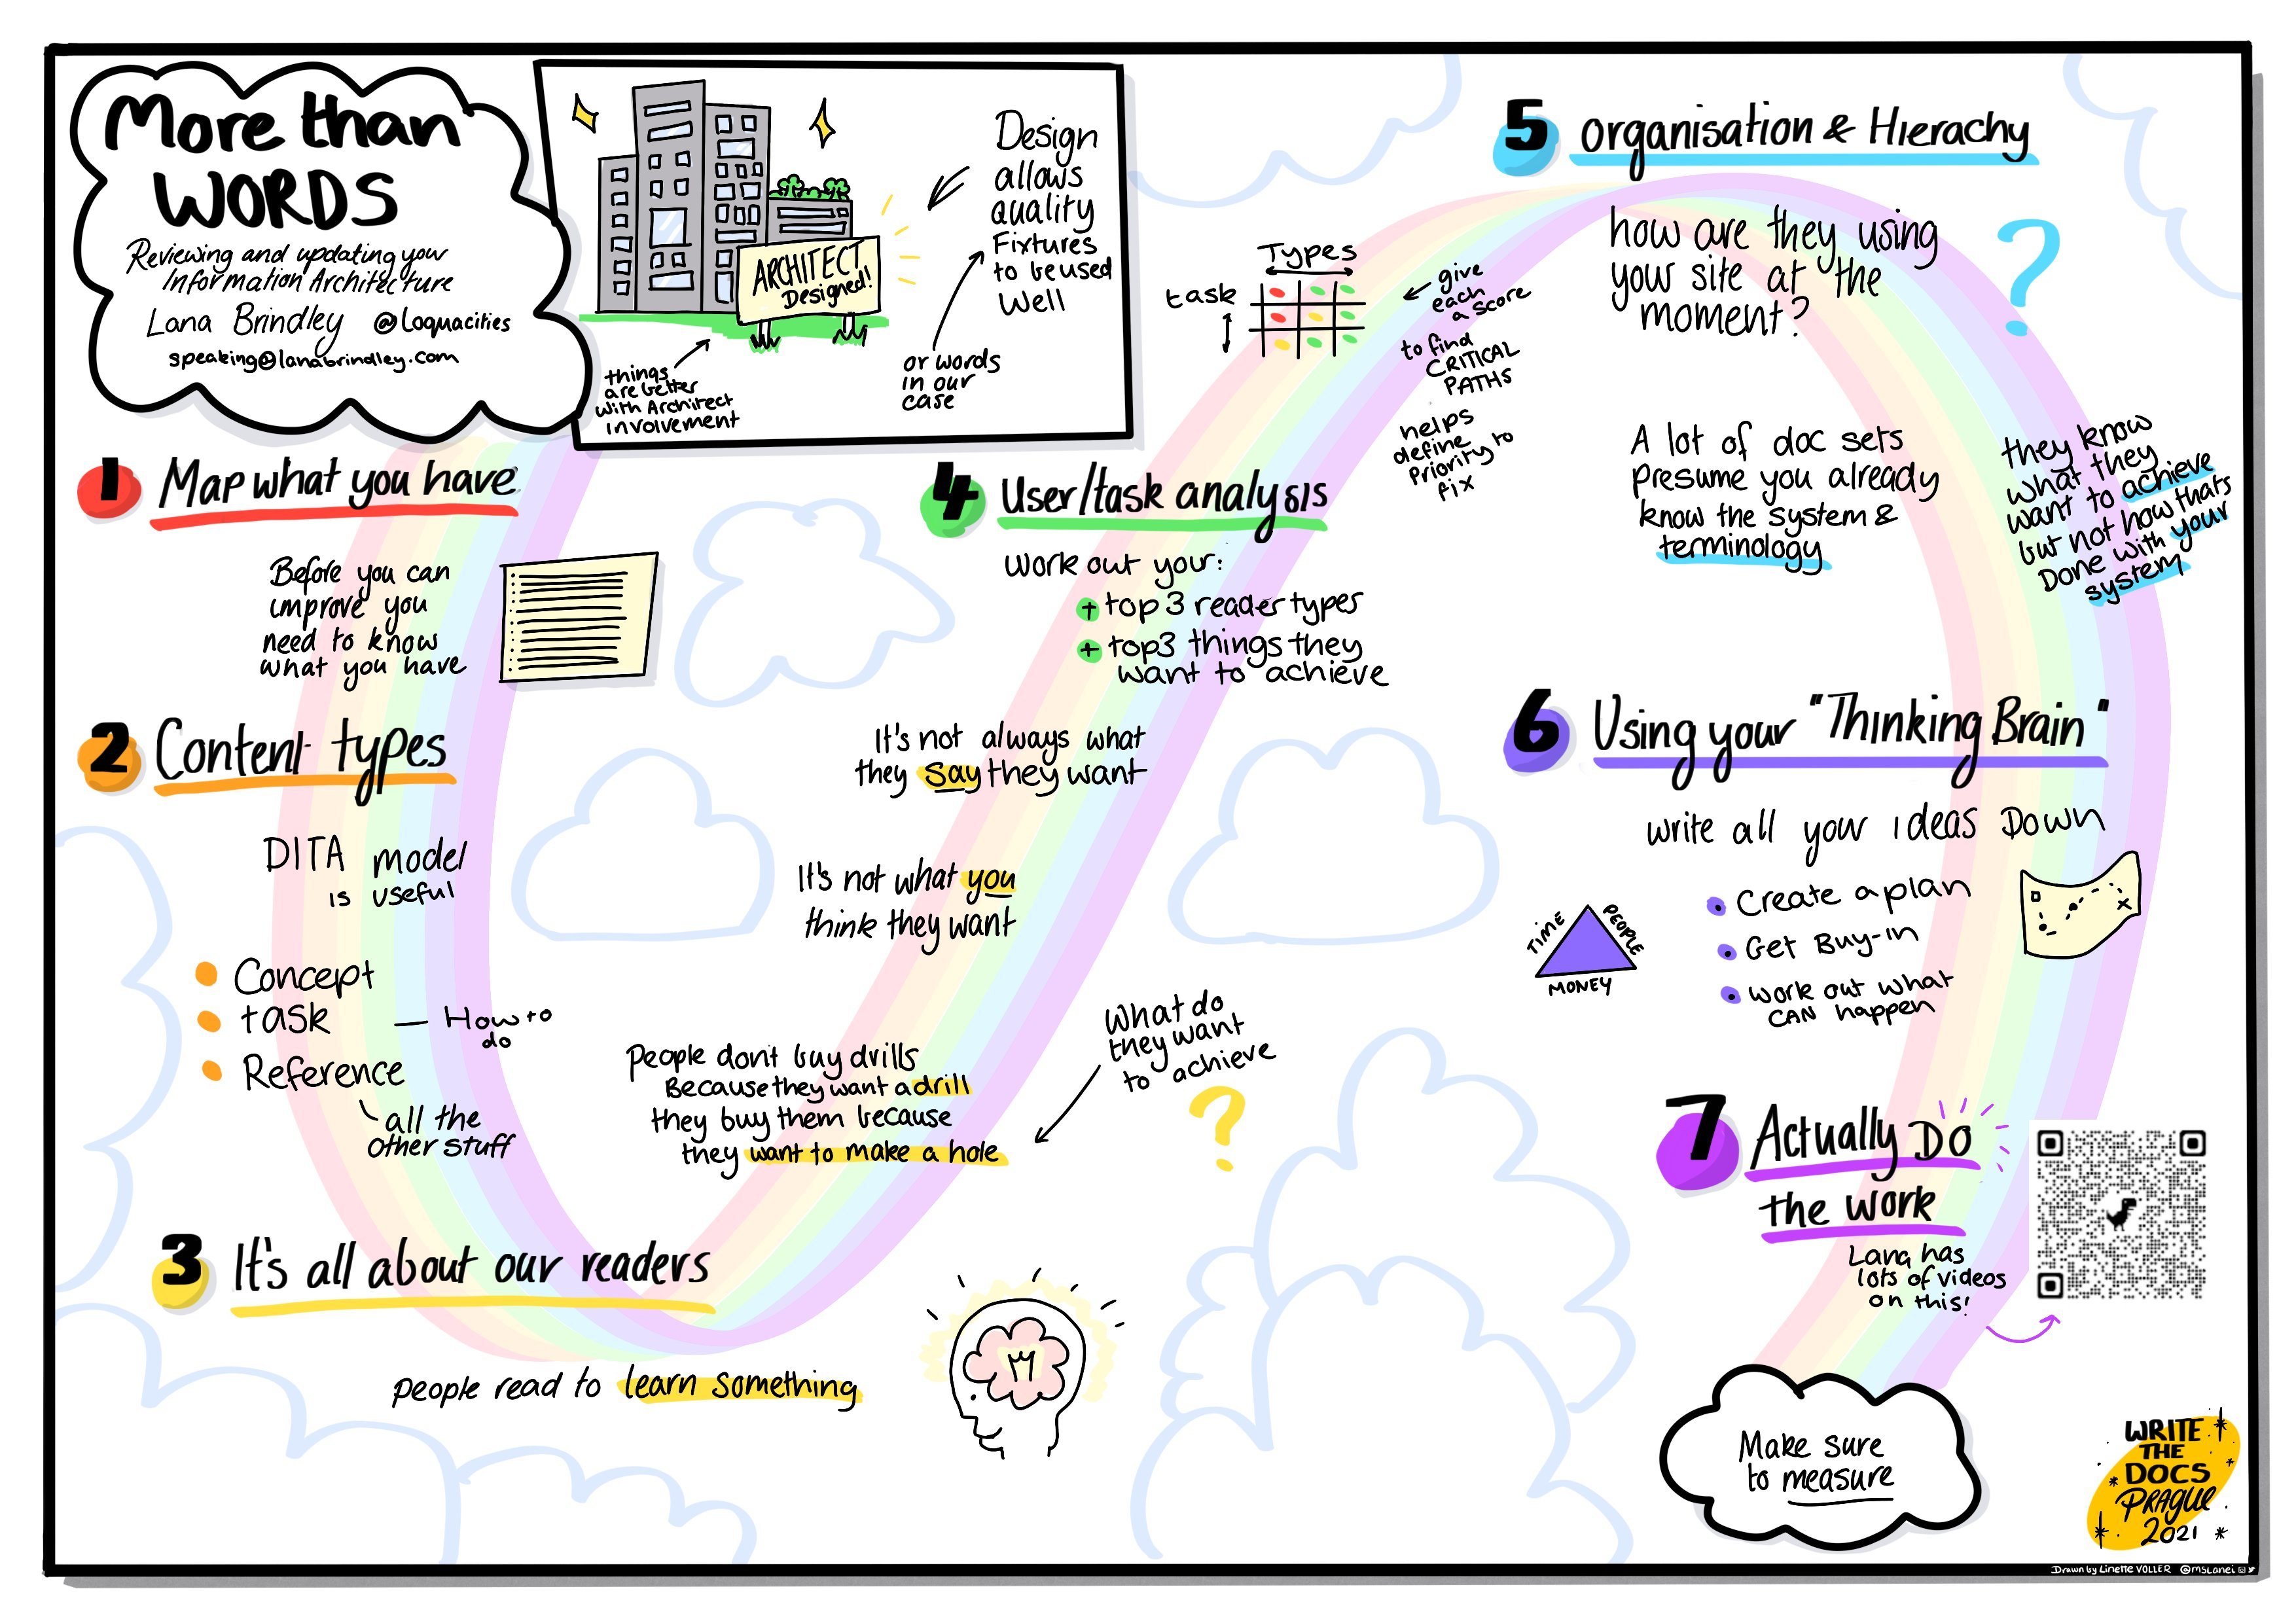 More than
WORDS
Reviewing and updating your
Information Architecture
Lana Brindley @Loquacities
speaking@lanabrindley.com
ARCHITECT
Designed!
things
are better
with Architect
involvement
Design
allows
quality
Fixtures
to be used
Well
or words
in our
case
1 Map what you have
Before you can
improve you
need to know
what you have
2 Content types
DITA model
is useful
Concept
task
How to
do
Reference
all the
other stuff
3 It's all about our readers
People read to learn something
People don't buy drills
Because they want a drill
they buy them because
they want to make a hole
What do
they want
to achieve
?
It's not what you
think they want
It's not always what
they say they want
4 User/task analysis
Work out your:
+ top 3 reader types
+ top 3 things they
want to achieve
Types
task
give
each
a score
to find
CRITICAL
PATHS
helps
define
Priority to
fix
5 Organisation & Hierachy
how are they using
your site at the
moment?
?
A lot of doc sets
presume you already
know the system &
terminology
they know
what they
want to achieve
but not how thats
Done with your
system
6 Using your "Thinking Brain"
write all your ideas Down
Create a plan
Get Buy-in
work out what
CAN happen
TIME
PEOPLE
MONEY
7 Actually DO
the work
Lana has
lots of videos
on this!
Make sure
to measure
WRITE
THE
DOCS
PRAGUE
2021
Drawn by Linette VOLLER @mslanei